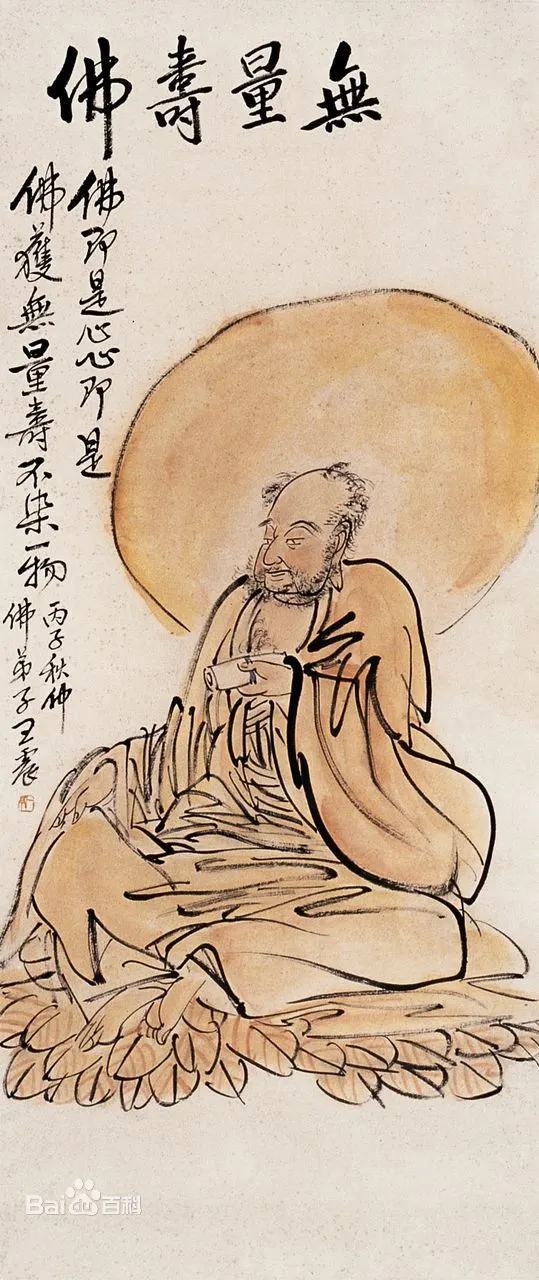 無量壽佛
佛即是心心即是
佛獲無量壽不染一物
丙子秋仲
佛弟子王震
Bai百科